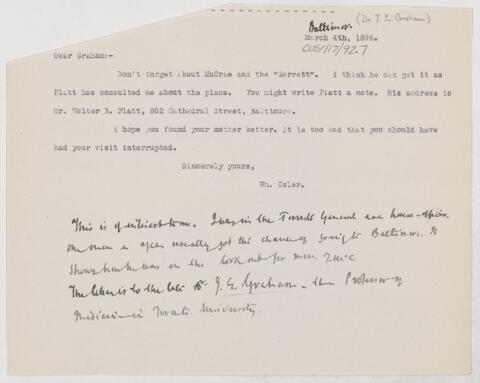 Baltimore. (Dr. J. E. Graham)
March 4th, 1896.
CUS/17/92.7
Dear Graham:-
Don't forget about McCrae and the "Garrett". I think he can get it as
Platt has consulted me about the place. You might write Platt a note. His address is
Dr. Walter B. Platt, 802 Cathedral Street, Baltimore.
I hope you found your mother better. It is too bad that you should have
had your visit interrupted.
Sincerely yours,
Wm. Osler.
This is of interest to me. I was in the Toronto General as a house-officer.
One man a year usually got the chance of going to Baltimore. It
shows how he was on the look out for men. T. McC
The letter is to the late Dr J. E. Graham - then Professor of
Medicine in Toronto University.